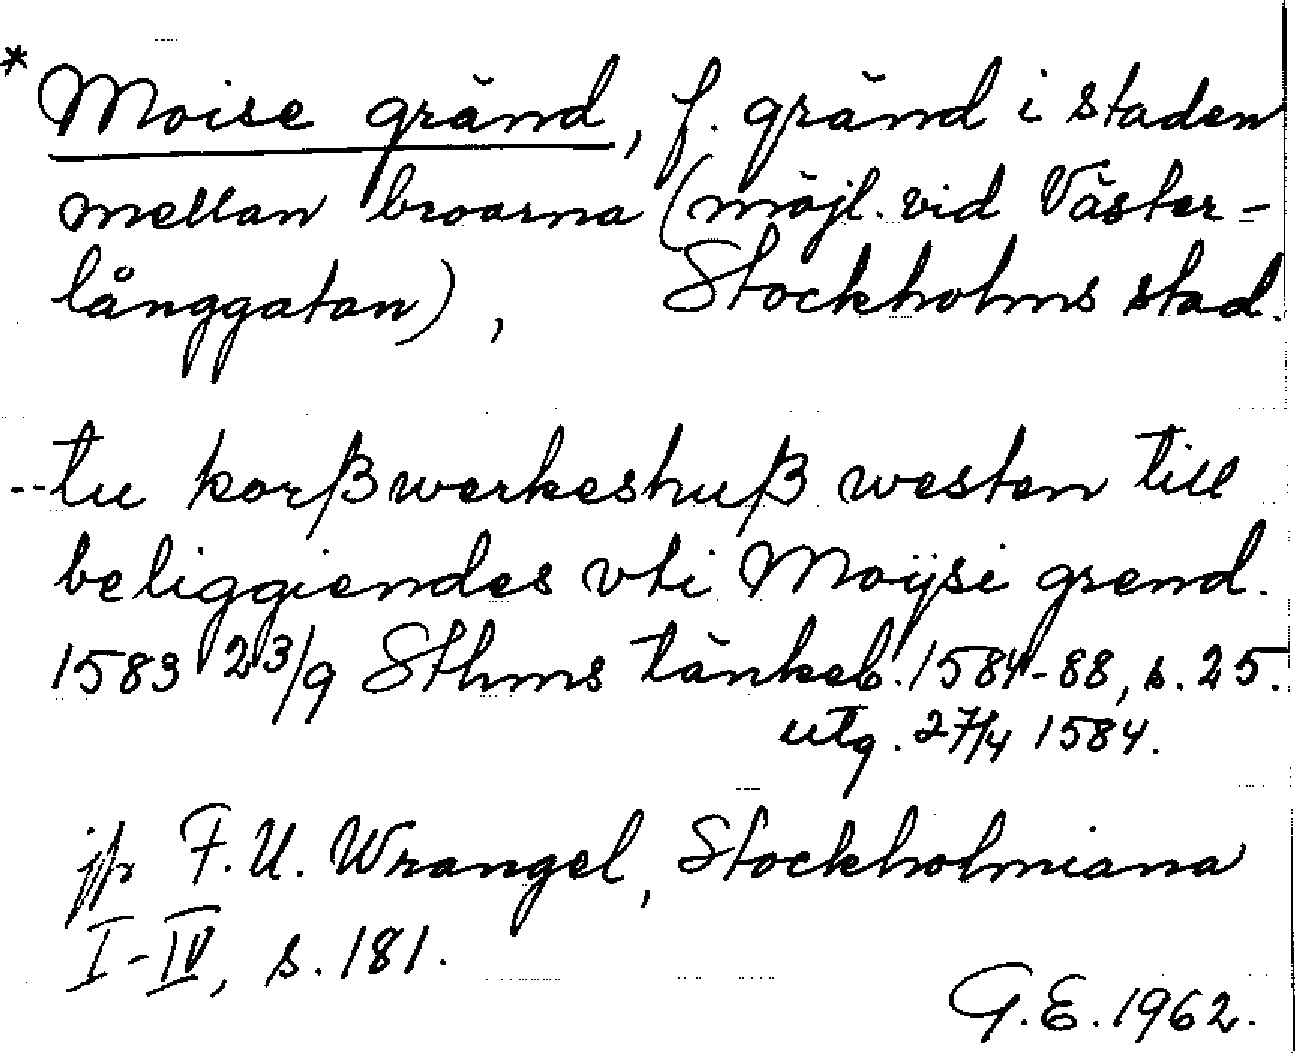 * Moise gränd, f. gränd i staden
mellan broarna (möjl. vid Väster-
långgatan), Stockholms stad.
--tu korßwerkeshuß westen till
beliggiendes vti Moÿsi grend.
1583 23/9 Sthms tänkeb. 1584-88, s. 25.
utg. 27/4 1584.
jfr F. U. Wrangel, Stockholmiana
I-IV, s. 181.
G.E. 1962.